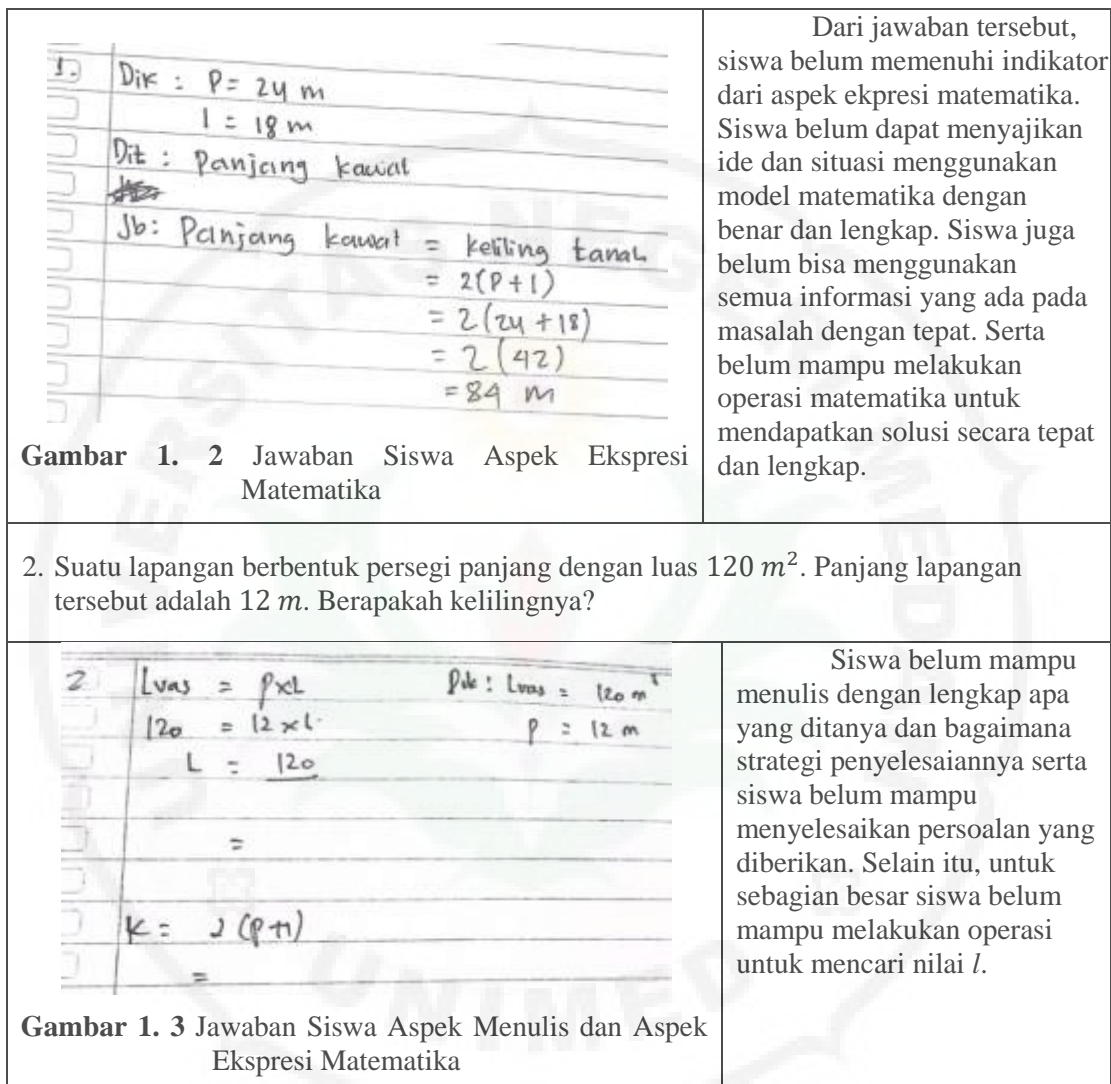 1.) Dik : P = 24 m
l = 18 m
Dit : Panjang kawat
Jb: Panjang kawat = keliling tanah
= 2(P+l)
= 2(24 + 18)
= 2(42)
= 84 m
Gambar 1. 2 Jawaban Siswa Aspek Ekspresi
Matematika
Dari jawaban tersebut,
siswa belum memenuhi indikator
dari aspek ekpresi matematika.
Siswa belum dapat menyajikan
ide dan situasi menggunakan
model matematika dengan
benar dan lengkap. Siswa juga
belum bisa menggunakan
semua informasi yang ada pada
masalah dengan tepat. Serta
belum mampu melakukan
operasi matematika untuk
mendapatkan solusi secara tepat
dan lengkap.
2. Suatu lapangan berbentuk persegi panjang dengan luas 120 m². Panjang lapangan
tersebut adalah 12 m. Berapakah kelilingnya?
2 Luas = PxL
120 = 12 x L
L = 120
=
K = 2 (P+l)
=
Dik : Luas = 120 m²
P = 12 m
Gambar 1. 3 Jawaban Siswa Aspek Menulis dan Aspek
Ekspresi Matematika
Siswa belum mampu
menulis dengan lengkap apa
yang ditanya dan bagaimana
strategi penyelesaiannya serta
siswa belum mampu
menyelesaikan persoalan yang
diberikan. Selain itu, untuk
sebagian besar siswa belum
mampu melakukan operasi
untuk mencari nilai l.
UNIMED